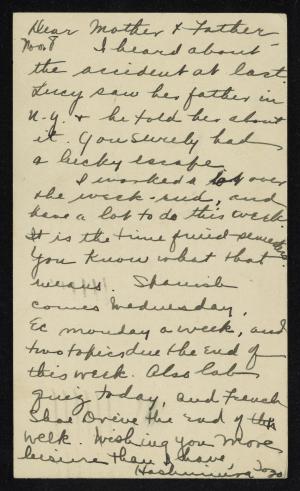 Dear Mother & Father -
Nov. 8 I heard about
the accident at last.
Lucy saw her father in
N.Y. & he told her about
it. You surely had
a lucky escape.
I worked a lot over
the week-end, and
have a lot to do this week.
It is the time
You know what that
means. Spanish
comes Wednesday,
Ec monday a week, and
two topics due the end of
this week. Also lab
quiz today, and French
Shoe Drive the end of this
week. Wishing you more
leisure than I have,